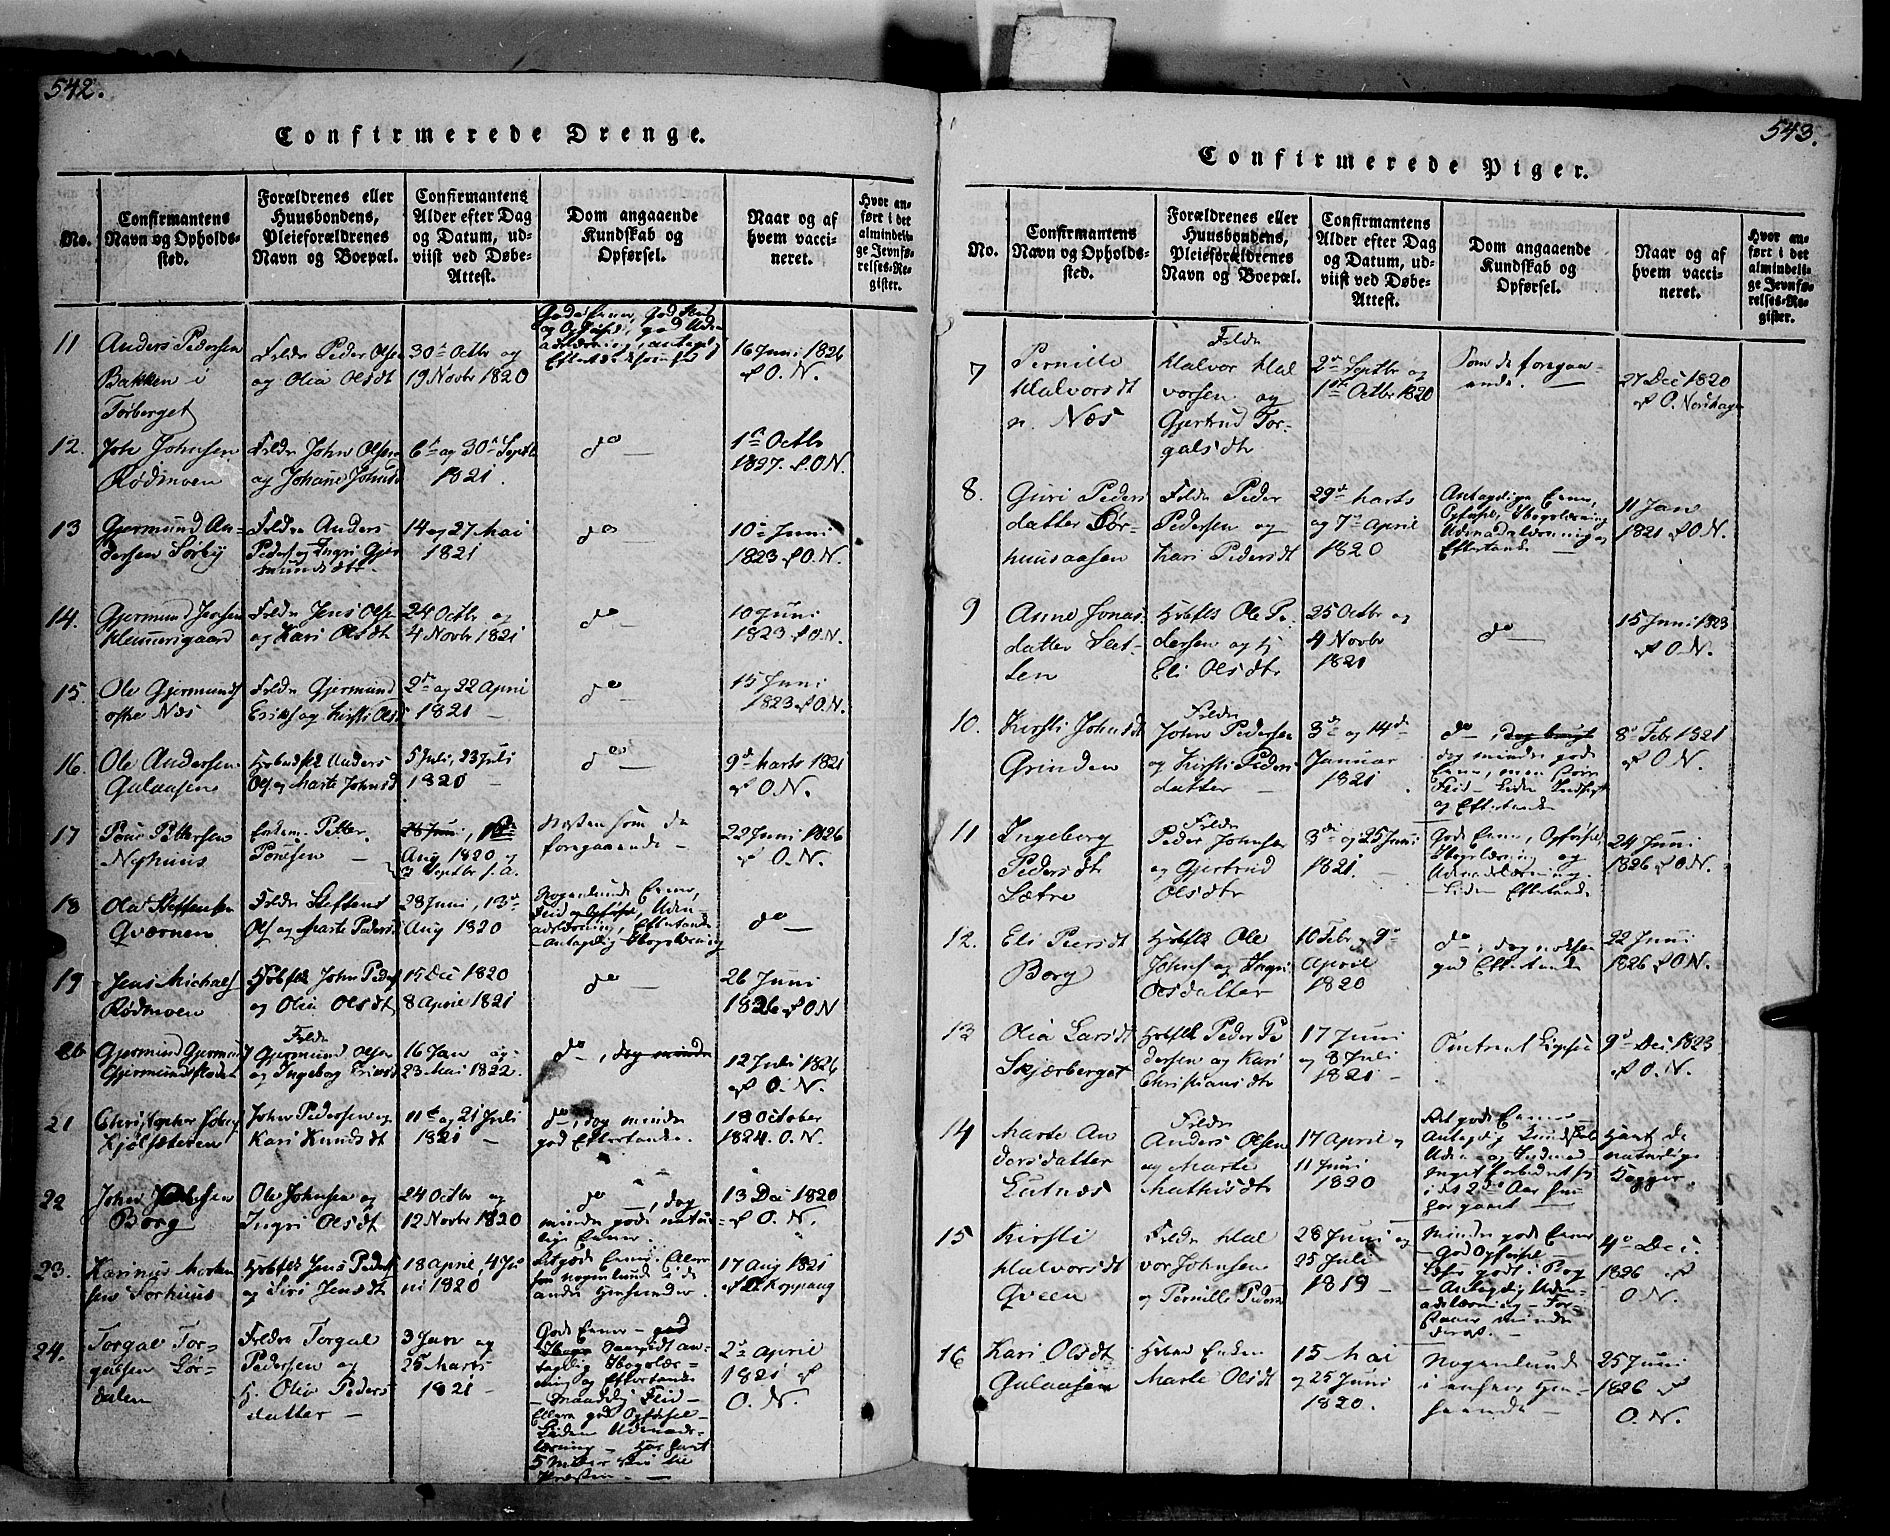 542.
Confirmerede Drenge.
No.
Confirmantens
Navn og Opholds-
sted.
Forældrenes eller
Huusbondens,
Pleieforældrenes
Navn og Boepæl.
Confirmantens
Alder efter Dag
og Datum, ud-
viist ved Døbe-
Attest.
Dom angaaende
Kundskab og
Opførsel.
Naar og af
hvem vacci-
neret.
Hvor an-
ført i det
almindeli-
ge Jevnfø-
relses-Re-
gister.
11
Anders Pedersen
Bakken i
Tørberget
Frldr Peder Olsen
og Olia Olsdt
30 Octbr og
19 Novbr 1820
16 Juni 1826
af O. N.
12.
Joh Johnsen
Rødmoen
Frldr John Olsen
og Johane Johnsd
6te og 30 Septb
1821
do
1 Octbr
1827. af O.N.
13
Gjermund An-
dersen Sørby
Frldre Anders
Peders og Ingri Gjer
mundsdtr.
14 og 27 Mai
1821
do
10 Juni
1823 af O.N.
14.
Gjermund Jensen
Klemmersgaard
Frldr Jens Olsen
og Kari Olsdt
24 Octbr og
4 Novbr 1821
do
10 Juni
1823 af O.N.
15
Ole Gjermunds
østre Næs
Frldr Gjermund
Eriks og Kirsti Olsd
2 og 22 April
1821
do
15 Juni
1823 af O.N.
16.
Ole Andersen
Gulaasen
Anders
Ols og Marte Johnsd
5 Juli, 23 Juli
1820
do
9 Marts 1821
af O.N.
17
Pettersen
Nyhuus
Enkem. Petter
Aug 1820 og
Septbr s. A.
Næsten som de
foregaaende
22 Juni 1826
af O.N.
18
Ola Steffensen
Qværnen
Frldr Steffens
Ols og Marte Peders
28 Juni, 13
Aug 1820
Nogenlunde Evner,
Flid og Opførsel, Uden-
adslæsning, Eftertanke
antagelig Bogslæsning
do
19
Jens Michaels
Rødmoen
John Peders
og Olia Olsdt
15 Dec 1820
8 April 1821
do
26 Juni
1826 af O.N
20
Gjermund Gjermunds
Gjermundsflodet
Frldr
Gjermund Olsen
og Ingeborg Eriksd
16 Jan og
23 Mai 1822.
do, dog mindre
12 Juli 1826
af O.N.
21
Christopher
Kjølsæteren
John Pedersen og
Kari Knudsdt
11te og 21 Juli
1821
do, dog mindre
god Eftertanke.
18 October
1824. O.N.
22
John Johnsen
Borg
Ole Johnsen og
Ingri Olsdt
24 Octbr og
12 Novbr 1820
do, dog
mindre gode natur
lige Evner.
13 Dec 1820
af O.N.
23.
Karinus Morten
sen Sørhuus
Jens Peders
og Siri Jensdt
18 April, 4 Ju
ni 1820
nogenlunde i de
andre Henseender.
17 Aug 1821
af Koppang
24.
Torgal Tor-
galsen Sør-
dalen
Frldre Torgal
Pedersen og
H. Olia Peders
datter
3 Jan og
25 Marts
1821
Gode Evner – god
tagelig Bogslæs-
ning og Eftertanke
– Flid –
Ellers god Opførsel –
Liden Udenads-
læsning – har havt
5 Miil til
Præsten.
2 April
1821 af
O. N.
543.
Confirmerede Piger.
No.
Confirmantens
Navn og Opholds-
sted.
Forældrenes eller
Huusbondens,
Pleieforældrenes
Navn og Boepæl.
Confirmantens
Alder efter Dag
og Datum, ud-
viist ved Døbe-
Attest.
Dom angaaende
Kundskab og
Opførsel.
Naar og af
hvem vacci-
neret.
Hvor an-
ført i det
almindeli-
ge Jevnfø-
relses-Re-
gister.
7
Pernille
Halvorsdt
n. Næs
Frldr
Halvor Hal
vorsen og
Gjertrud Tor-
galsdtr
2 Septbr og
1 Octbr 1820
Som de foregaa-
ende.
27 Dec 1820
af O. Nordhagen
8.
Guri Peders
datter Sør-
huusaasen
Frldr Peder
Pedersen og
Kari Pedersdt
29 Marts
og 7 April
1820
Antagelige Evner,
Opførsel, Bogslæsning
Udenadslæsning og
Eftertanke
11 Jan
1821 af O.N.
9
Anne Jonas
datter Slet-
ten
Ole Pe-
dersen og
Eli Olsdtr
25 Octbr og
4 Novbr
1821
do
15 Juni 1823
af O.N.
10.
Kirsti Johnsdt
Grinden
Frldre
John Pedersen
og Kirsti Peders
datter
3 og 14
Januar
1821
do,
dog mindre gode
Evner, men stor
Flid – Liden Indsigt
og Eftertanke
8 Febr 1821
af O.N.
11
Ingeborg
Pedersdt
Sætre
Frldre
Peder Johnsen
og Gjertrud
Olsdtr
3 og 25 Juni
1821.
Gode Evner, Opførsel,
Bogslæsning og
Udenadslæsning.
– Liden Eftertanke.
24 Juni
1826 af O.N.
12.
Eli Peersdt
Borg
Ole
Johns og Ingri
Olsdatter
10 Febr og 9
April
1820
do, dog noksaa
god Eftertanke
22 Juni
1826 af O.N.
13
Olia Larsdt
Skjærberget
Peder Pe
dersen og Kari
Christiansdtr
17 Juni
og 8 Juli
1821
Omtrent ligesaa
9 Dec 1823
af O.N.
14
Marte An
dersdatter
Lutnæs
Frldre
Anders Olsen
og Marte
Mathisdtr
17 April og
11 Juni
1820
Ret gode Evner –
Antagelig Kundskab
i det 2det Aar hun
har gaaet
Havt de
naturlige
Kopper.
15
Kirsti
Halvorsdt
Qveen
Frldr Hal
vor Johnsen
og Pernille Peders
28 Juni og
25 Juli
1819
Mindre gode Evner
– God Opførsel –
Læser godt i Bog
– Antagelig Uden-
adslæsning – For-
staaer mindre
deraf.
4 Dec.
1826 af
O.N.
16
Kari Olsdt
Gulaasen
Enken
Marte Olsdt
15 Mai
og 25 Juni
1820.
Nogenlunde
i enhver Hen-
seende
25 Juni
1826 af
O.N.